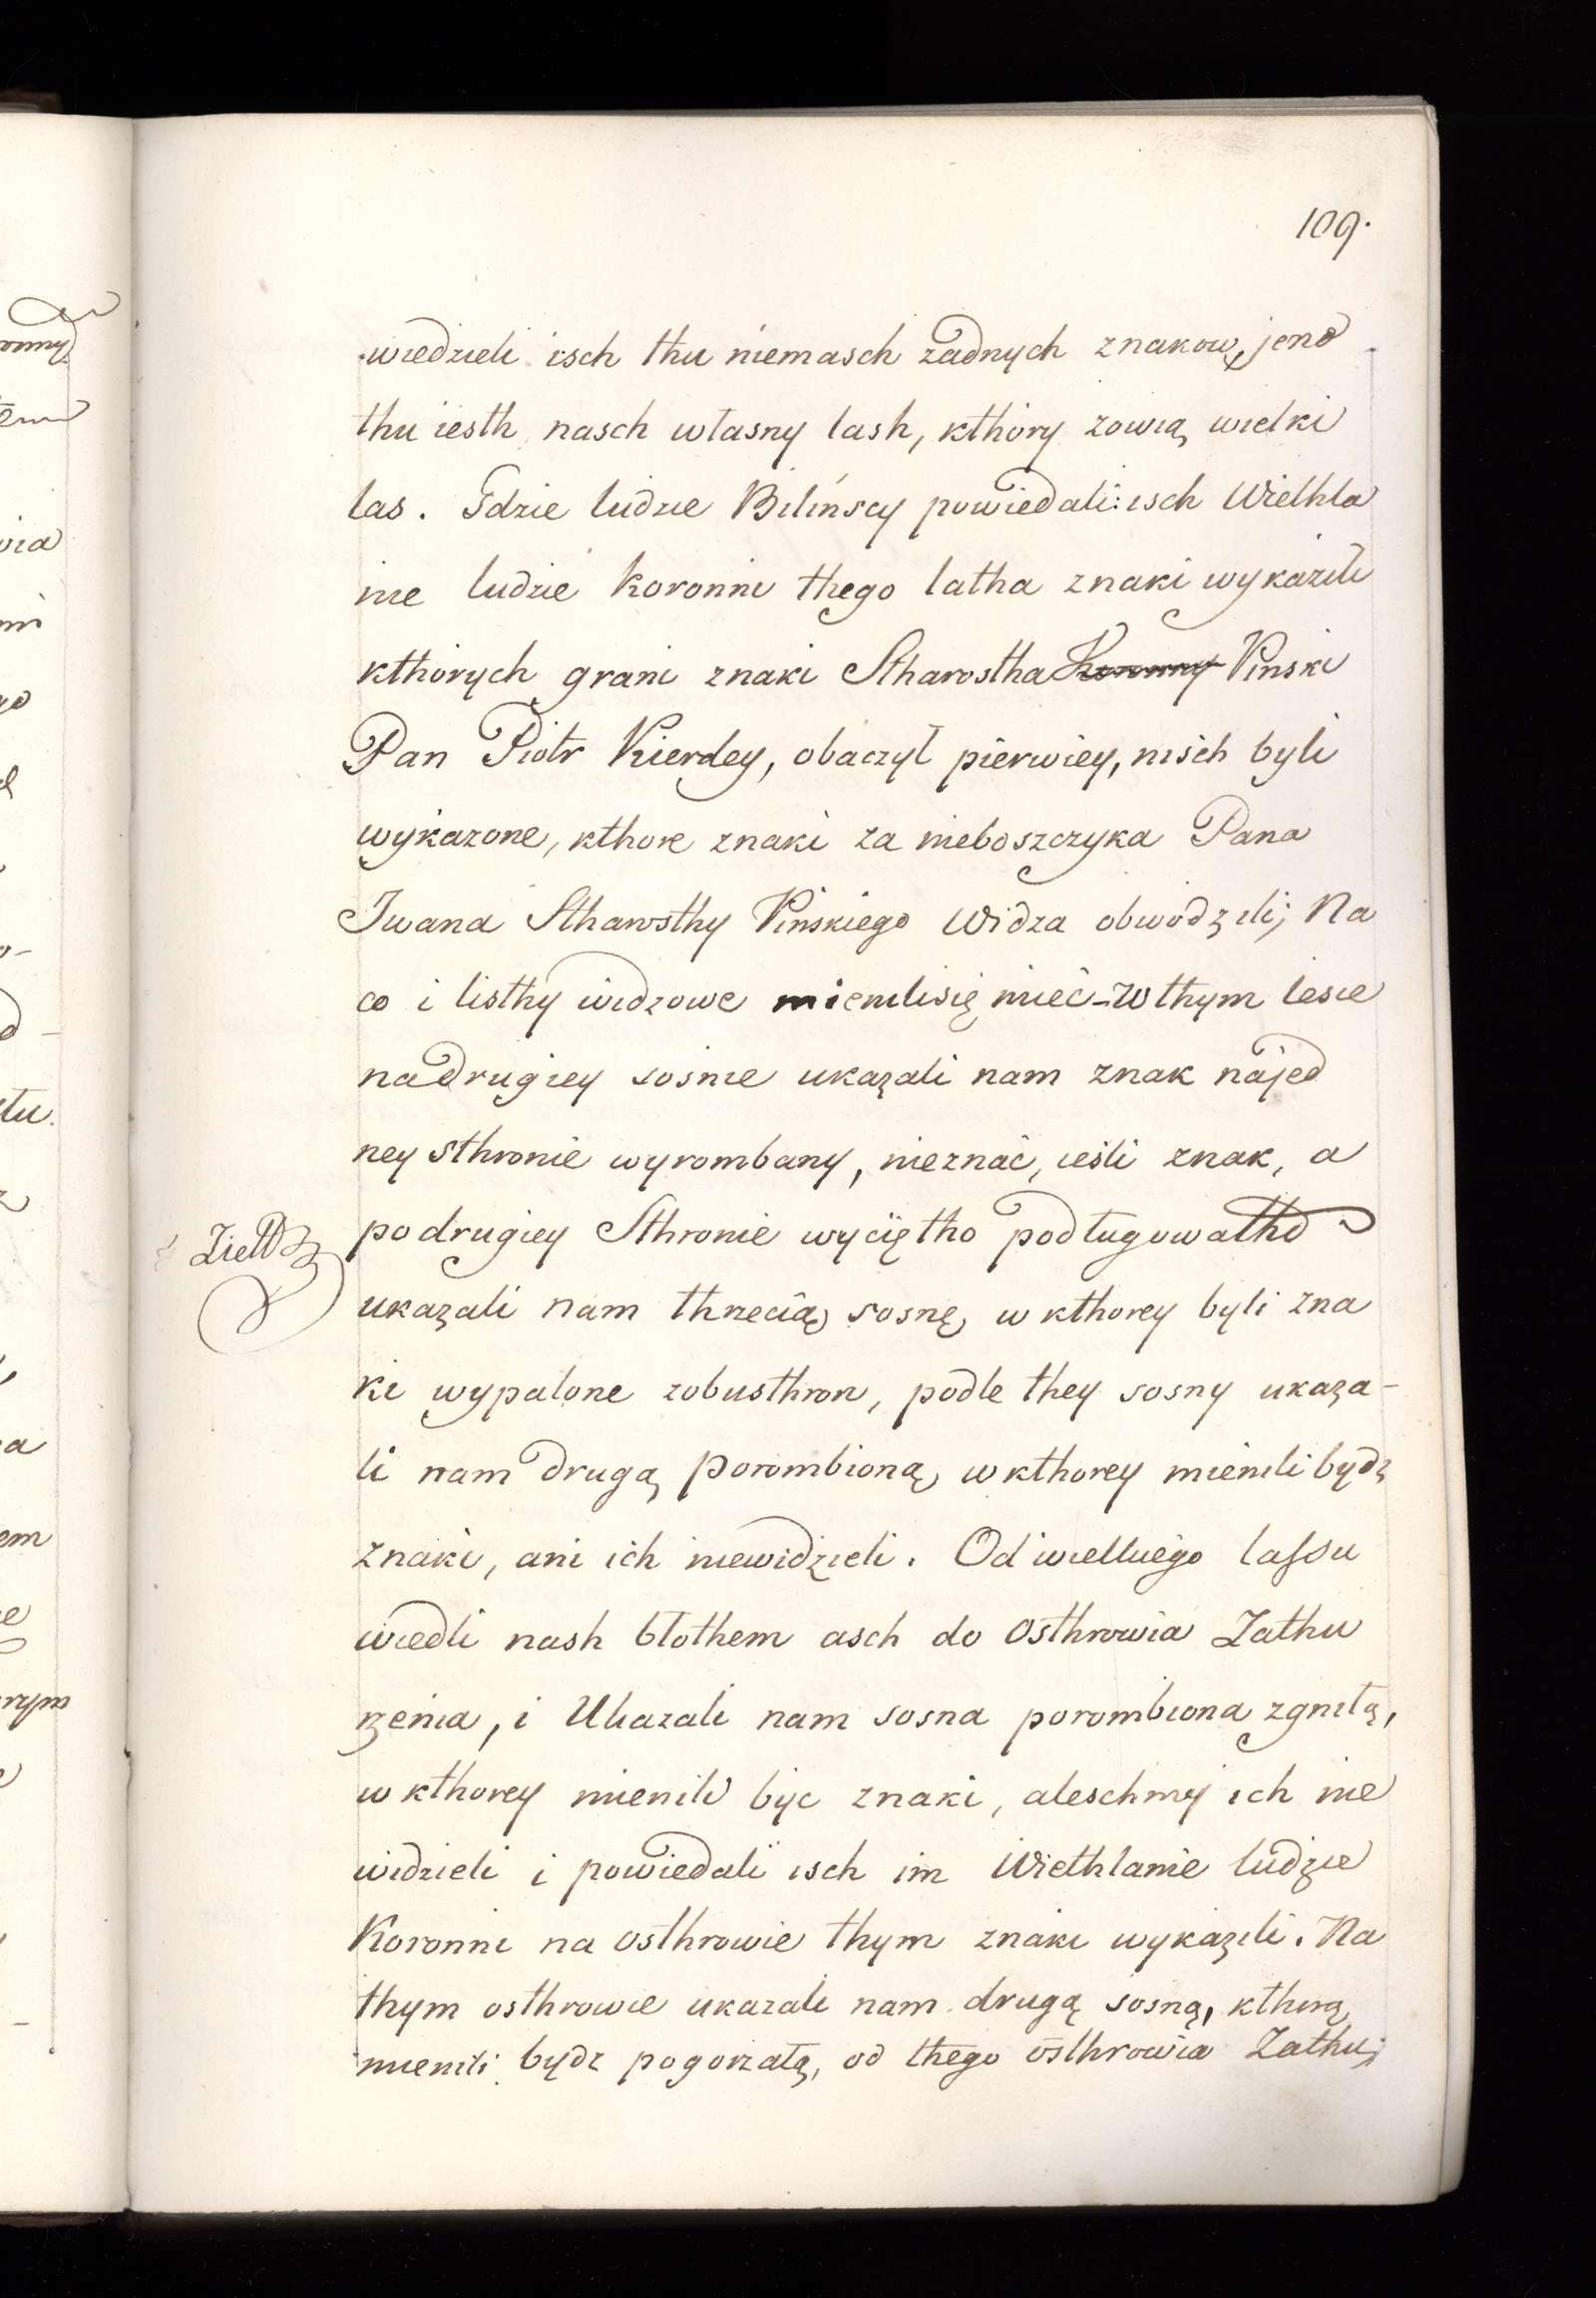 109.
wiedzieli isch thu niemasch żadnych znakow, jeno
thu iesth nasch własny lash, kthory zowią wielki
las. Gdzie ludzie Bilińscy powiedali: isch Wielhla
nie ludzie koronni thego latha znaki wykazili
kthorych grani znaki Stharostha Koronny Pinski
Pan Piotr Kierdey, obaczył pierwiey, nisch byli
wykazone, kthore znaki za nieboszczyka Pana
Iwana Stharosthy Pinskiego Widza obwodzili; Na
co i listhy widzowe mienilisię mieć - W thym lesie
nadrugiey sosnie ukazali nam znak najed
ney sthronie wyrombany, nieznać, ieśli znak, a
podrugiey Sthronie wycięto podługowatho
ukazali nam thrzecią sosnę, w kthorey byli zna
ki wypalone zobusthron, podle they sosny ukaza-
li nam drugą porombioną, wkthorey mienili bydz
znaki, ani ich niewidzieli. Od wielkiego lassu
wiedli nash błothem asch do Osthrowia Zathu
rzenia, i Ukazali nam sosna porombiona zgniłą,
w kthorey mienili byc znaki, aleschmy ich nie
widzieli i powiedali isch im Wiethlanie ludzie
Koronni na osthrowie thym znaki wykazili. Na
thym osthrowie ukazali nam drugą sosną, kthorą
mienili bydz pogorzałą, od thego osthrowia Zathu;